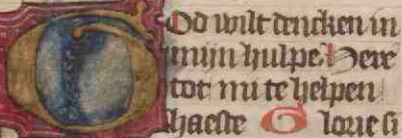 God wilt dencken in
mijn hulpe. Here
tot mi te helpen
haeste Glorie si